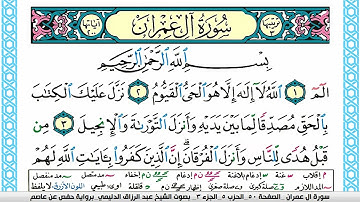 سُورَةُ آلِ عِمْرَانَ
بِسْمِ ٱللَّهِ ٱلرَّحْمَٰنِ ٱلرَّحِيمِ
الٓمٓ ١ ٱللَّهُ لَآ إِلَٰهَ إِلَّا هُوَ ٱلْحَىُّ ٱلْقَيُّومُ ٢ نَزَّلَ عَلَيْكَ ٱلْكِتَٰبَ
بِٱلْحَقِّ مُصَدِّقًا لِّمَا بَيْنَ يَدَيْهِ وَأَنزَلَ ٱلتَّوْرَىٰةَ وَٱلْإِنجِيلَ ٣ مِن
قَبْلُ هُدًى لِّلنَّاسِ وَأَنزَلَ ٱلْفُرْقَانَ إِنَّ ٱلَّذِينَ كَفَرُوا۟ بِـَٔايَٰتِ ٱللَّهِ لَهُمْ
سورة آل عمران الصفحة ٥٠ الجزء ٣ بصوت الشيخ عبد الرزاق الدليمي برواية حفص عن عاصم